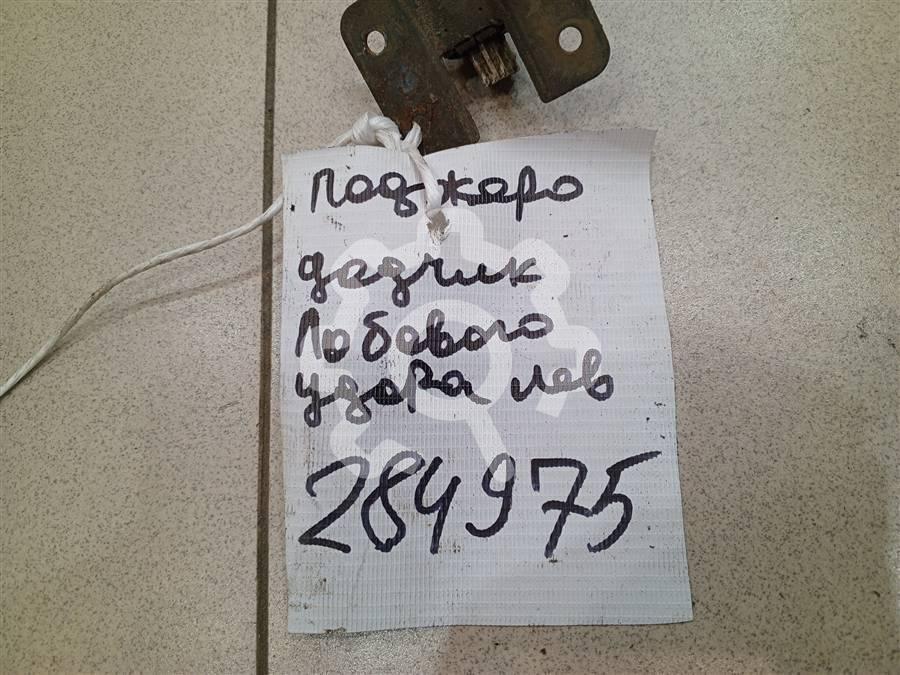 Паджаро
дадчик
Лобового
удара лев
284975